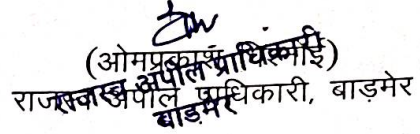 (ओमप्रकाश विश्नोई)
राजस्व अपील प्राधिकारी
राजस्व अपील प्राधिकारी, बाड़मेर
बाड़मेर